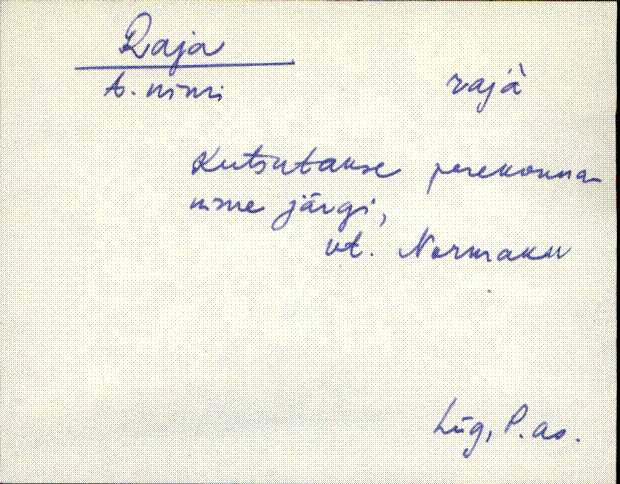 Raja
t. nimi rajà
Kutsutakse perekonna-
nime järgi,
vt. Normaku
Lüg, P. as.